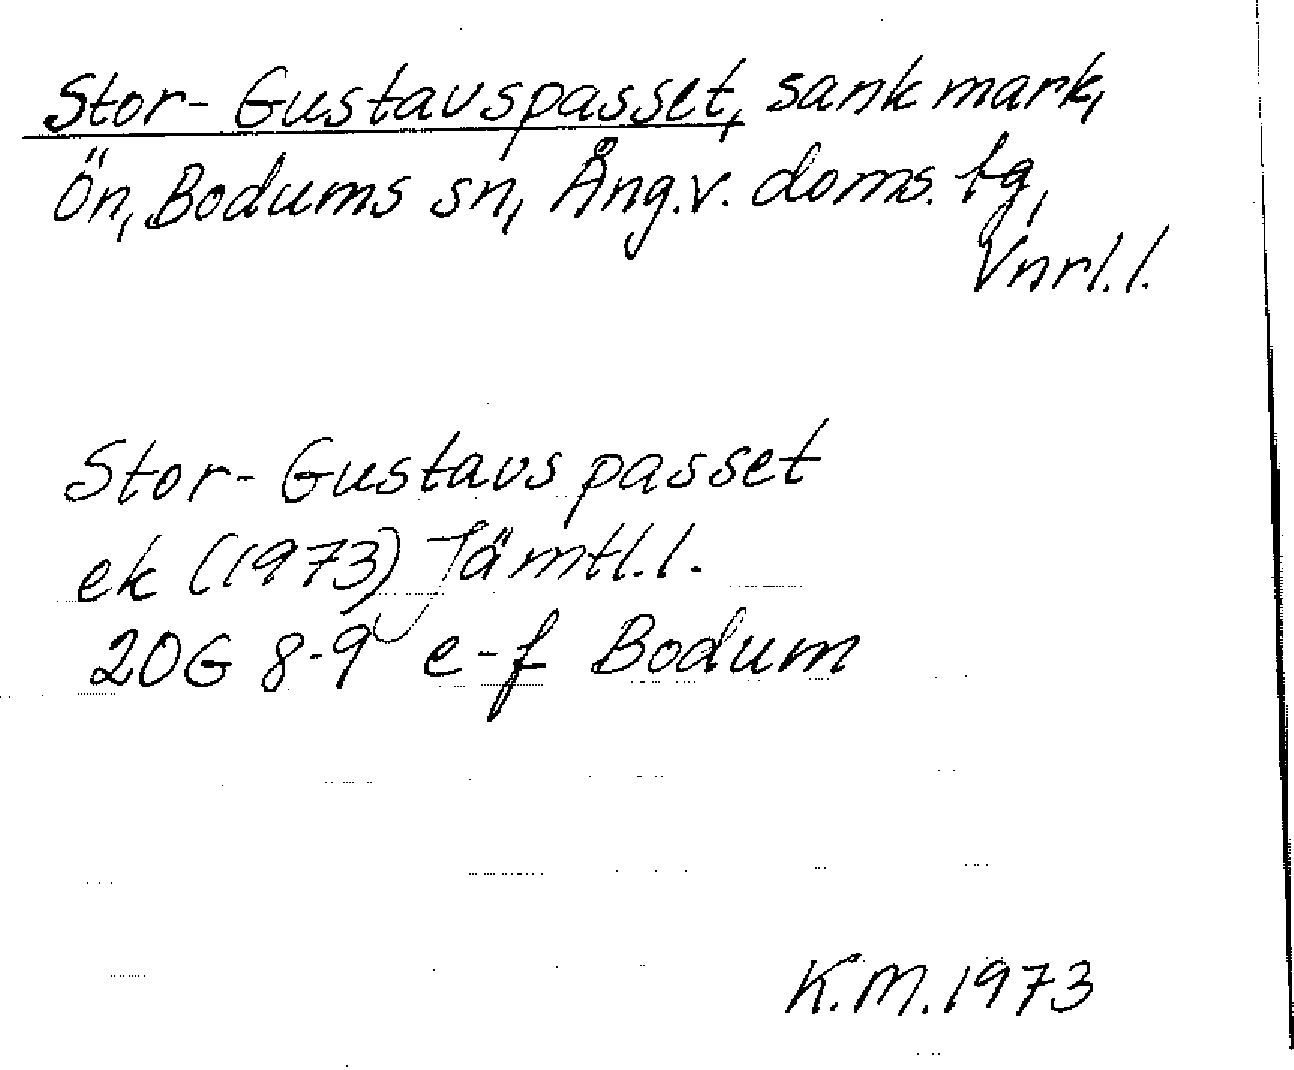 Stor-Gustavspasset, sankmark,
Ön, Bodums sn, Ång.v. doms. tg,
Vnrl.l.
Stor-Gustavspasset
ek (1973) Jämtl.l.
20G 8-9 e-f Bodum
K.M. 1973